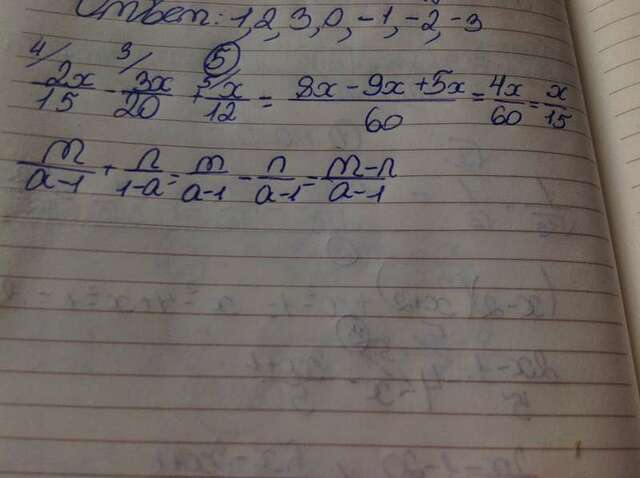 Ответ: 1, 2, 3, 0, -1, -2, -3
⑤
4/ 3/ 5/
2x/15 - 3x/20 + x/12 = (8x - 9x + 5x)/60 = 4x/60 = x/15
m/(a-1) + n/(1-a) = m/(a-1) - n/(a-1) = (m-n)/(a-1)